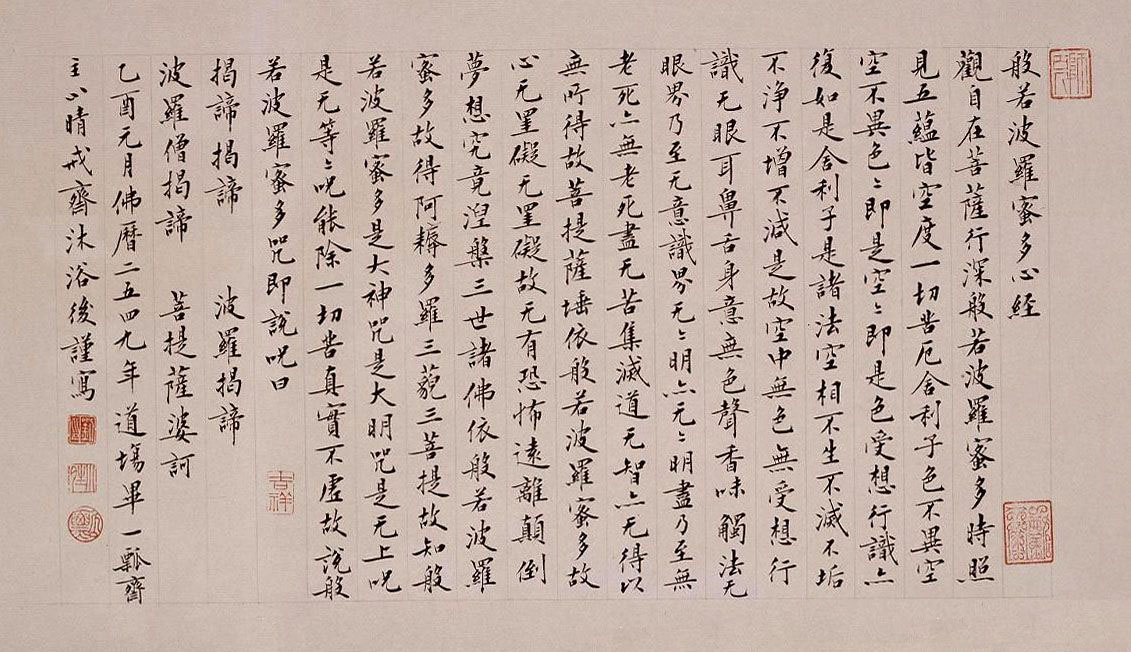 般若波羅蜜多心經
觀自在菩薩行深般若波羅蜜多時照
見五蘊皆空度一切苦厄舍利子色不異空
空不異色〻即是空〻即是色受想行識亦
復如是舍利子是諸法空相不生不滅不垢
不淨不增不減是故空中無色無受想行
識无眼耳鼻舌身意無色聲香味觸法无
眼界乃至无意識界无〻明亦无〻明盡乃至無
老死亦無老死盡无苦集滅道无智亦无得以
無所得故菩提薩埵依般若波羅蜜多故
心无罣礙无罣礙故无有恐怖遠離顛倒
夢想究竟涅槃三世諸佛依般若波羅
蜜多故得阿耨多羅三藐三菩提故知般
若波羅蜜多是大神咒是大明咒是无上呪
是无等〻呪能除一切苦真實不虛故說般
若波羅蜜多咒即說呪曰
揭諦揭諦 波羅揭諦
波羅僧揭諦 菩提薩婆訶
吉祥
乙酉元月佛曆二五四九年道場畢一瓢齋
主晴戒齋沐浴後謹寫